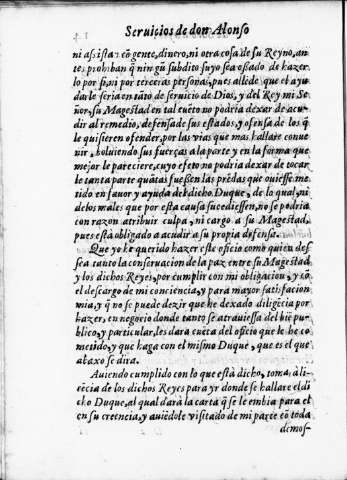 Seruicios de don Alonso
ni assistar cõ gente, dinero, ni otra cosa de su Reyno, an-
te prohiban q̃ ningũ subdito suyo sea osado de hazer
lo por si, ni por terceras personas, pues allēde que el ayu
darle seria en tãto de seruicio de Dios, y del Rey mi Se
ñor, su Magestad en tal cueto no podria dexar de acu-
dir al remedio, defensa de sus estados, y ofensa de los q̃
le quisieren ofender, por las vias que mas hallare conue
nir, boluiendo sus fuerças a la parte y en la forma que
mejor le pareciere, cuyo efeto no podria dexar de tocar
le tanta parte quãtas fuessen las prēdas que ouiesse me
tido en fauor y ayuda del dicho Duque, de lo qual, ni
de los males que por esta causa sucediessen, no se podria
con razon atribuir culpa, ni cargo a su Magestad,
pues està obligado a acudir a su propia defensa.
Que yo he querido hazer este oficio como quien des
sea tanto la conseruacion de la paz entre su Magestad
y los dichos Reyes, por cumplir con mi obligacion, y cõ
el descargo de mi conciencia, y para mayor satisfacion
mia, y q̃ no se puede dezir que he dexado diligēcia por
hazer, en negocio donde tanto se atrauiessa del biē pu-
blico, y particular, les dara cueta del oficio que le he co
metido, y que haga con el mismo Duque, que es el que
abaxo se dira.
Auiendo cumplido con lo que està dicho, tomarà li-
cēcia de los dichos Reyes para yr donde se hallare el di
cho Duque, al qual darà la carta q̃ se le embia para el
en su creencia, y auiēdole visitado de mi parte cõ toda
demos-